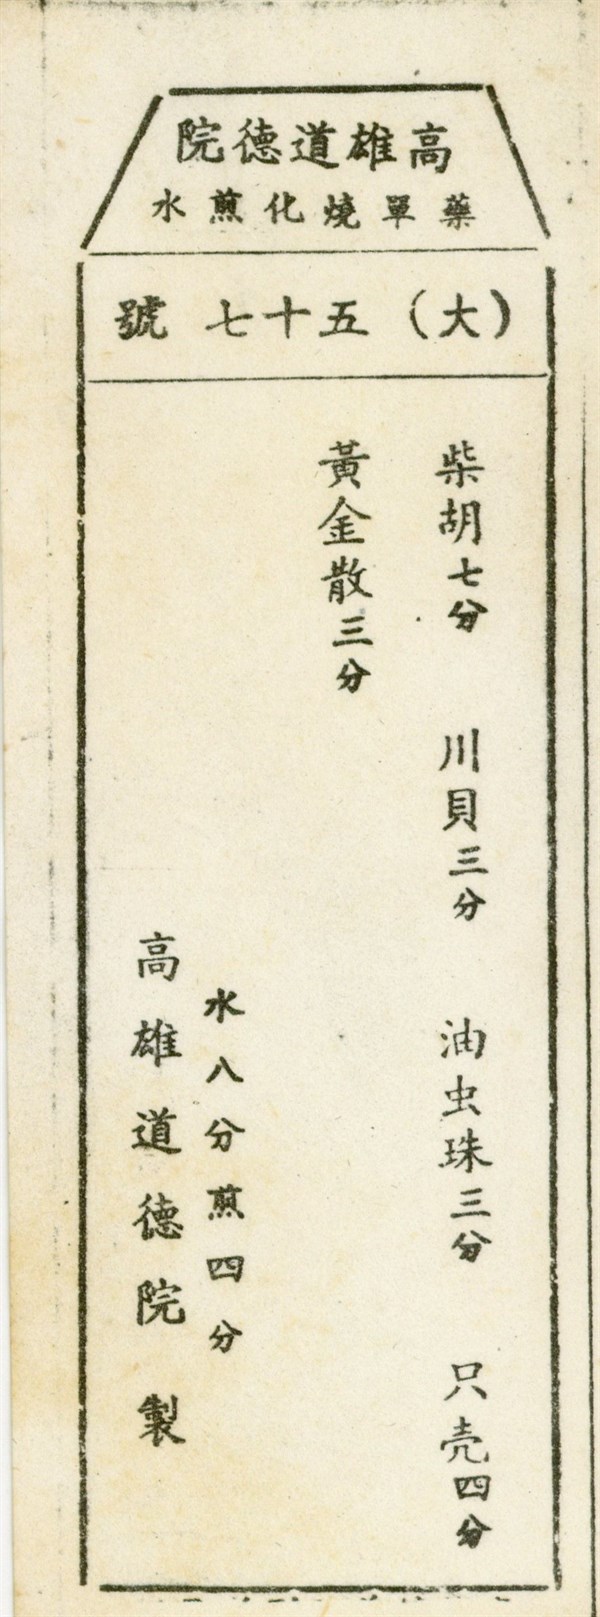 高雄道德院
藥單燒化煎水
(大)五十七號
柴胡七分 川貝三分 油虫珠三分 只壳四分
黃金散三分
水八分煎四分
高雄道德院製